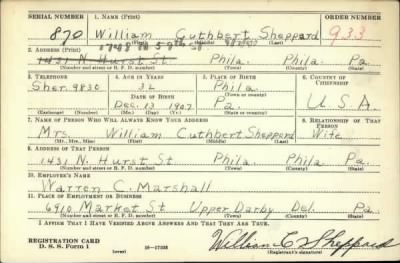 SERIAL NUMBER 1. NAME (Print) ORDER NUMBER
870 William Cuthbert Sheppard 933
(First) (Middle) (Last)
2. ADDRESS (Print)
1431 N. Hurst St. Phila. Phila. Pa.
(Number and street or R. F. D. number) (Town) (County) (State)
3. TELEPHONE 4. AGE IN YEARS 5. PLACE OF BIRTH 6. COUNTRY OF CITIZENSHIP
Sher. 9830 32 Phila.
DATE OF BIRTH (Town or county)
Dec. 13 1907 Pa. U.S.A.
(Exchange) (Number) (Mo.) (Day) (Yr.) (State or country)
7. NAME OF PERSON WHO WILL ALWAYS KNOW YOUR ADDRESS 8. RELATIONSHIP OF THAT PERSON
Mrs. William Cuthbert Sheppard Wife
(Mr., Mrs., Miss) (First) (Middle) (Last)
9. ADDRESS OF THAT PERSON
1431 N. Hurst St Phila. Phila Pa.
(Number and street or R. F. D. number) (Town) (County) (State)
10. EMPLOYER'S NAME
Warren C. Marshall
11. PLACE OF EMPLOYMENT OR BUSINESS
6910 Market St Upper Darby Del. Pa.
(Number and street or R. F. D. number) (Town) (County) (State)
I AFFIRM THAT I HAVE VERIFIED ABOVE ANSWERS AND THAT THEY ARE TRUE.
REGISTRATION CARD
D. S. S. Form 1 (over) 16—17105 William C Sheppard
(Registrant's signature)